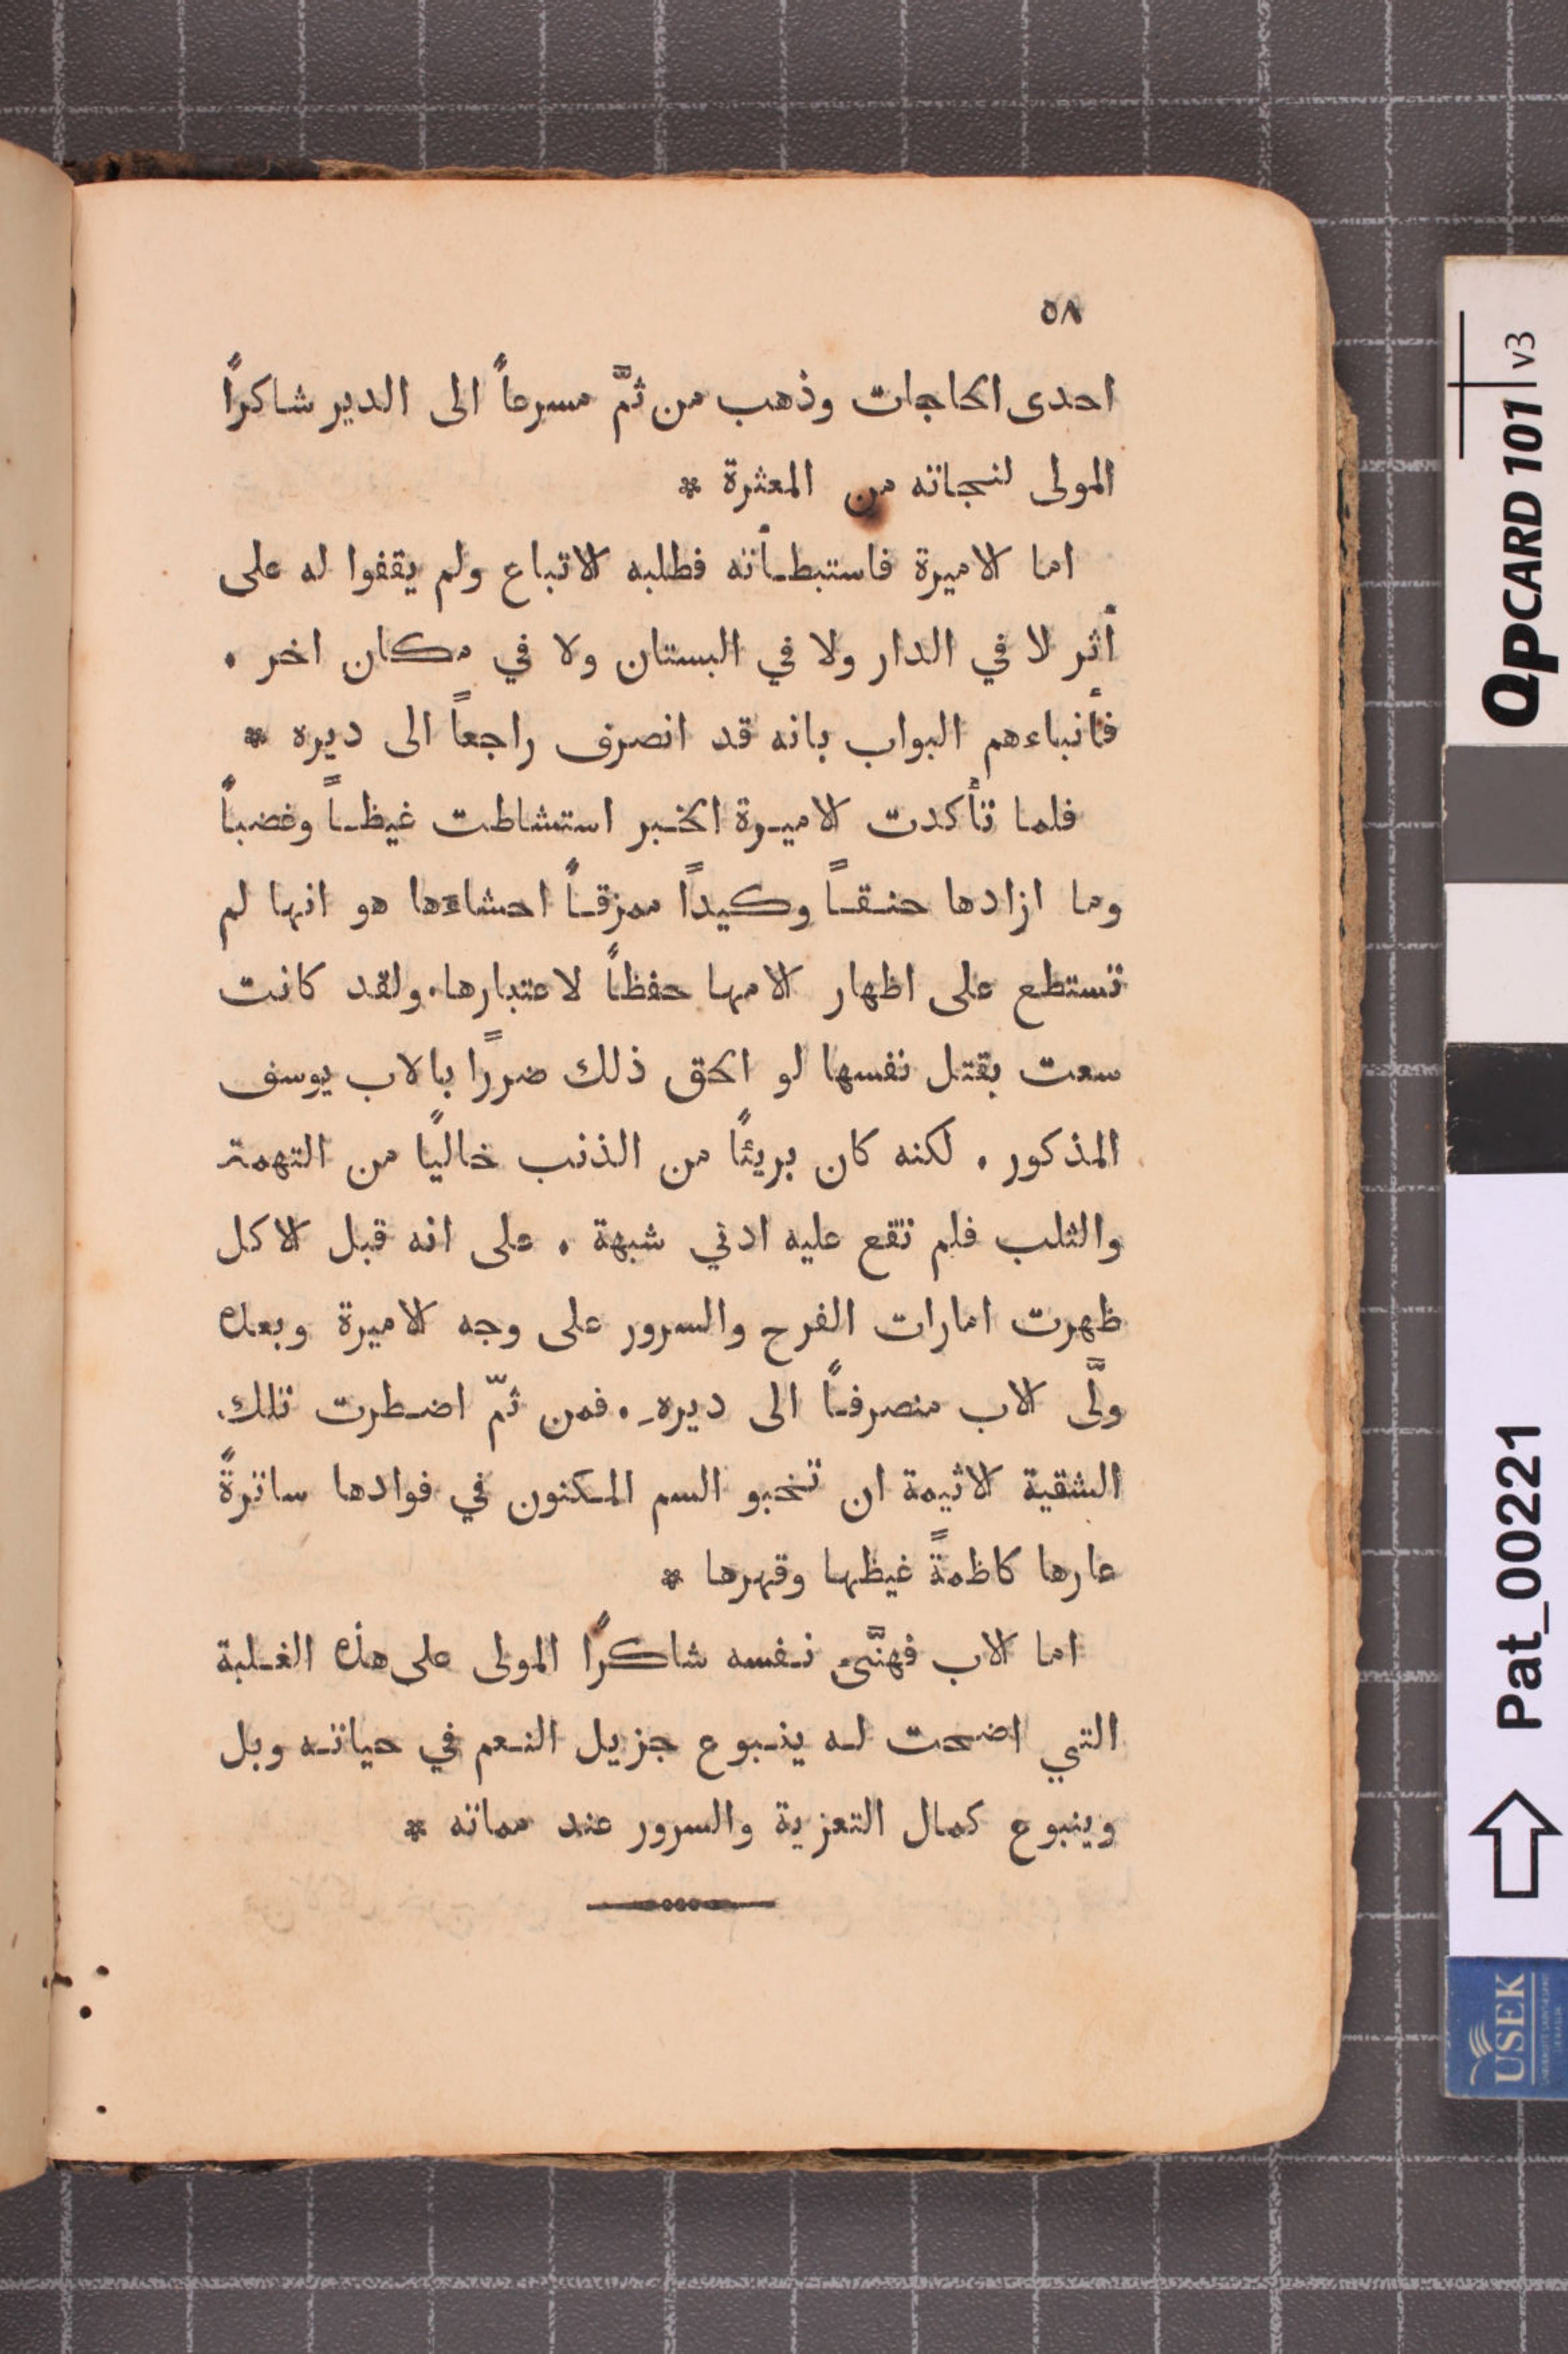 ٥٨
احدى الحاجات وذهب من ثمَّ مسرعاً الى الدير شاكراً
المولى لنجاته من المعثرة *
اما الاميرة فاستبطـأته فطلبه الاتباع ولم يقفوا له على
أثر لا في الدار ولا في البستان ولا في مكان اخر .
فأنباءهم البواب بانه قد انصرف راجعاً الى ديره *
فلما تأكدت الاميـرة الخـبر استشاطت غيظـاً وغضباً
وما ازادها حنـقـاً وكيدًا ممزقـاً احشاءها هو انها لم
تستطع على اظهار الامها حفظاً لاعتبارها . ولقد كانت
سعت بقتل نفسها لو الحق ذلك ضررًا بالاب يوسف
المذكور . لكنه كان بريئًا من الذنب خاليًا من التهمة
والثلب فلم تقع عليه ادني شبهة . على انه قبل الاكل
ظهرت امارات الفرح والسرور على وجه الاميرة وبعده
ولَّى الاب منصرفـاً الى ديرهِ . فمن ثمّ اضـطرت تلك
الشقية الاثيمة ان تخبو السم المـكنون في فوادها ساترةً
عارها كاظمةً غيظها وقهرها *
اما الاب فهنَّىء نـفسه شاكرًا المولى على هذه الغـلبة
التي اضحت لـه ينـبوع جزيل النـعم في حياتـه وبل
وينبوع كمال التعزية والسرور عند مماته *
QPCARD 101 v3
Pat_00221
USEK